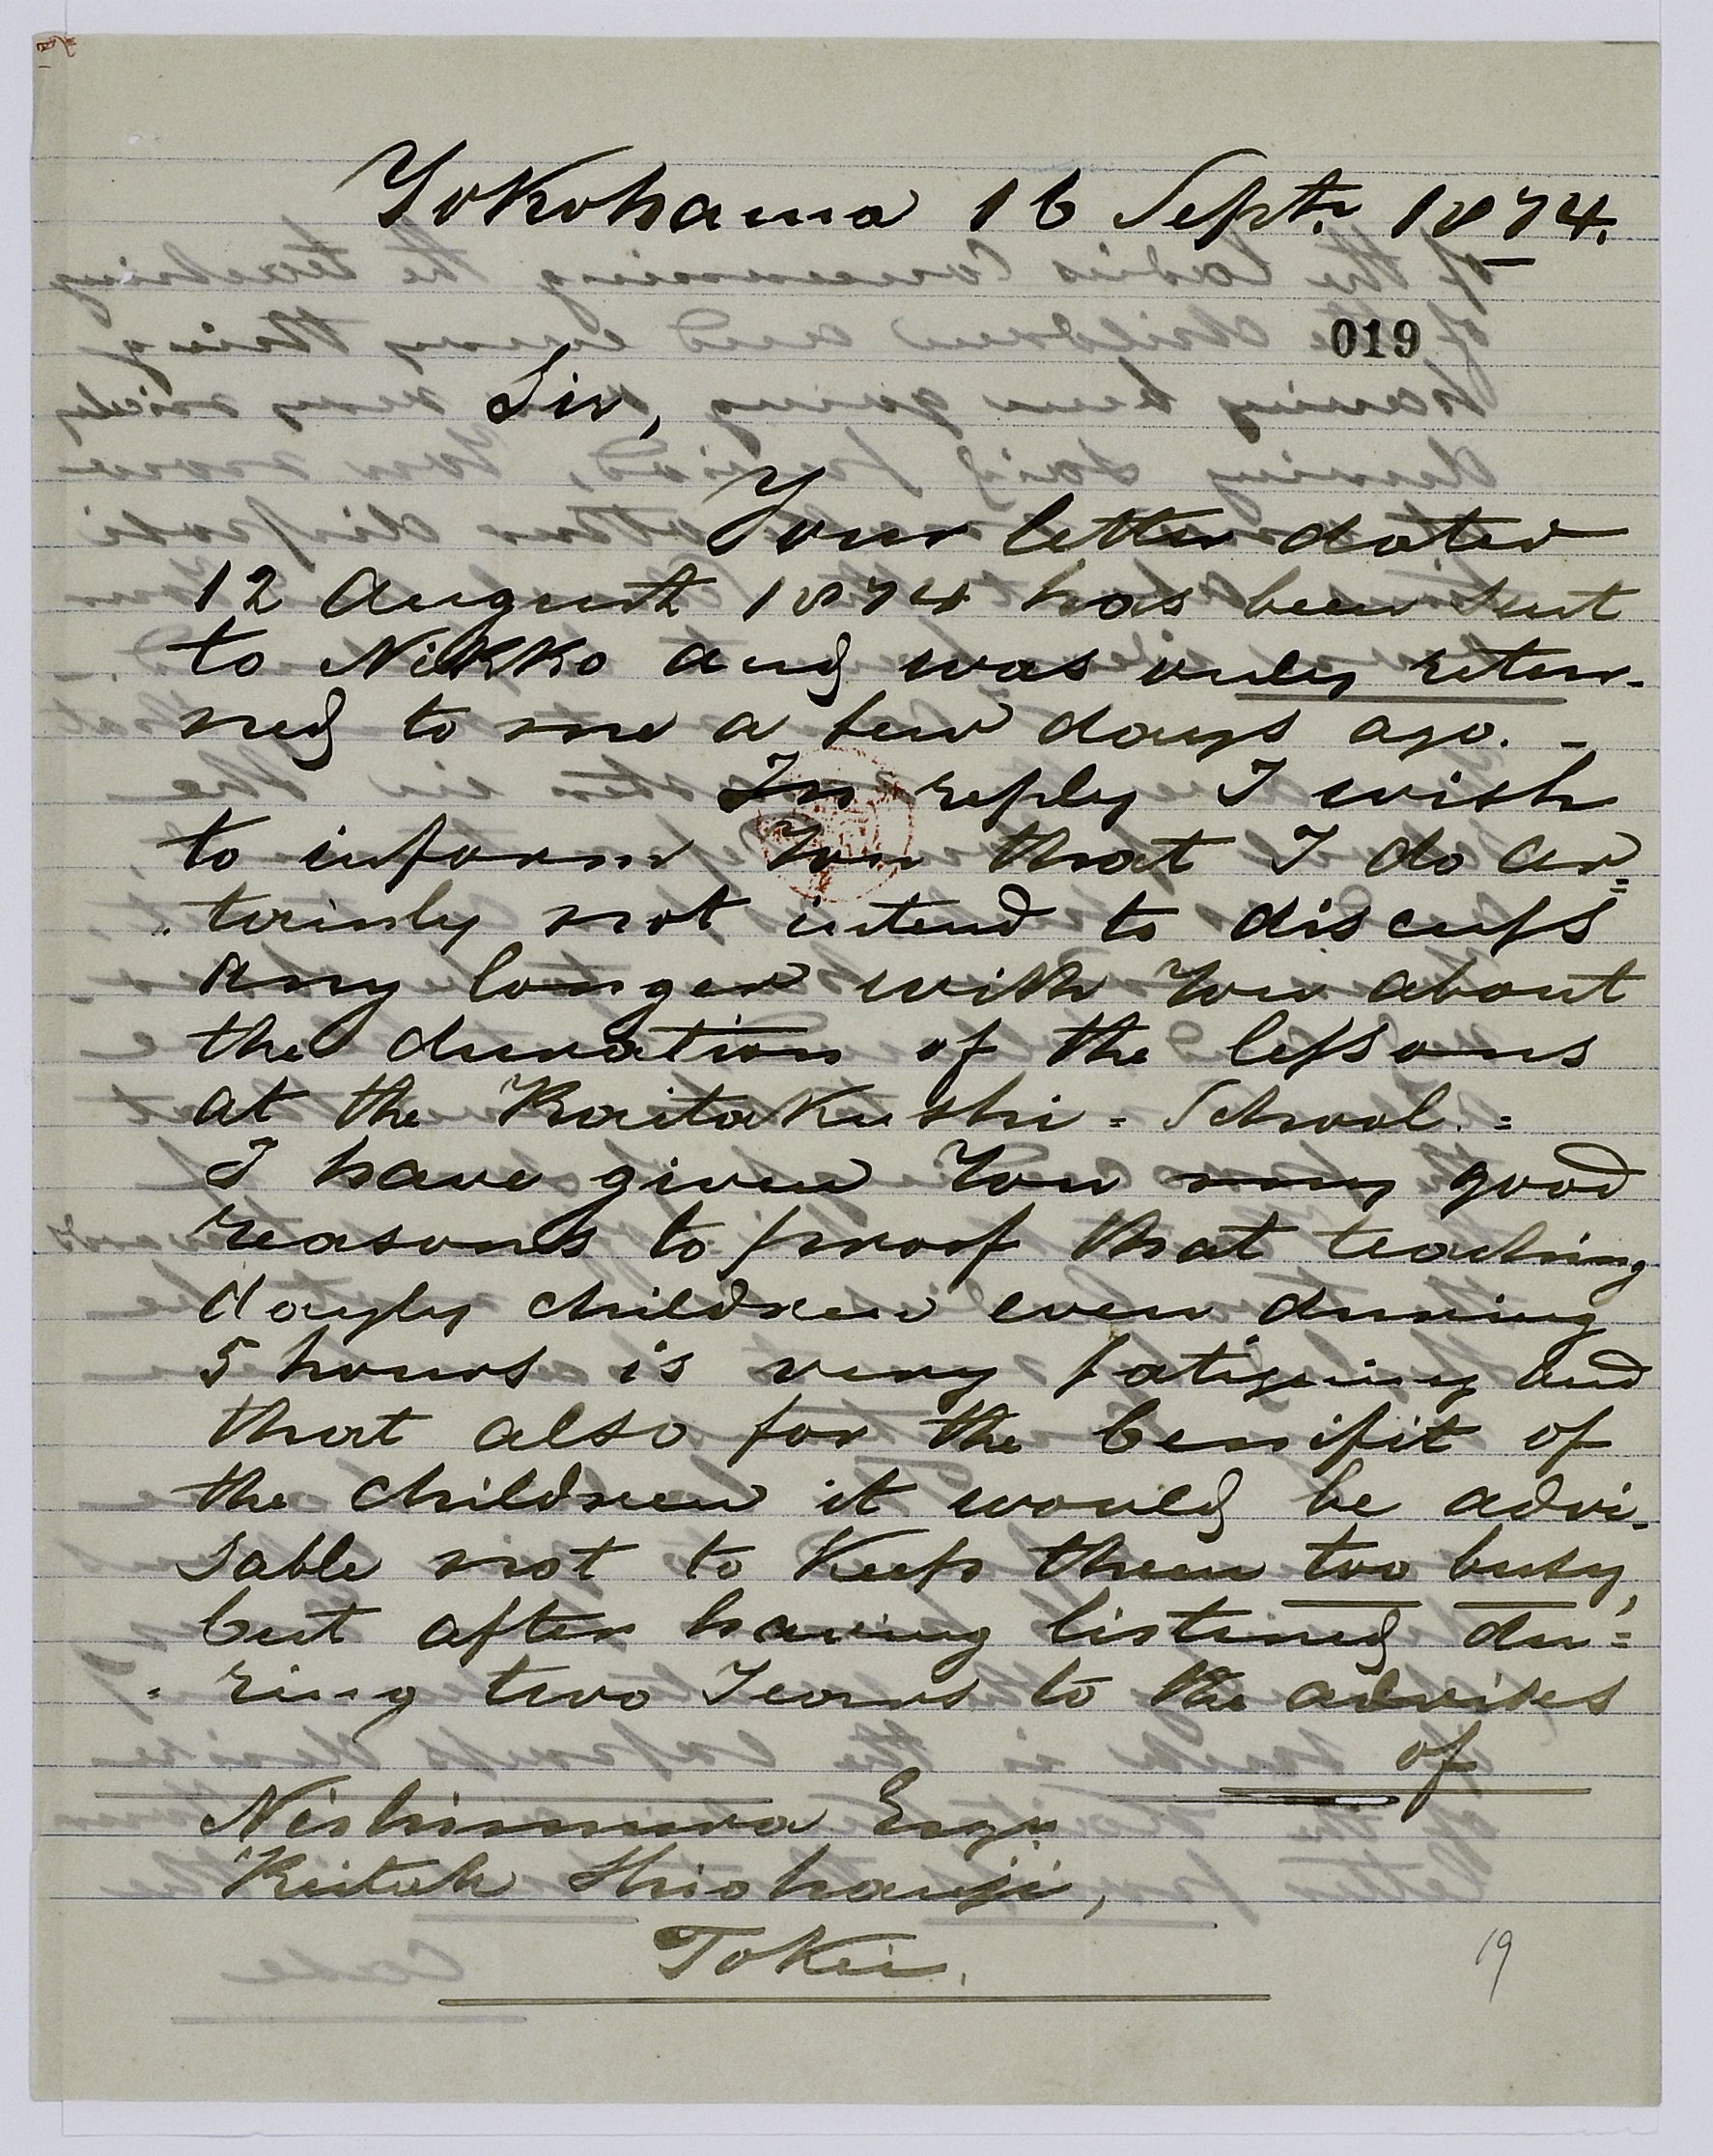 Yokohama 16 Sept. 1874.
019
Sir,
Your letter dated
12 August 1874 has been sent
to Nikko and was only retur-
ned to me a few days ago. -
In reply I wish
to inform You that I do cer=
tainly not intend to discuss
any longer with You about
the duration of the lessons
at the Kaitakushi = School. =
I have given You my good
reasons to proof that teaching
dayly children even during
5 hours is very fatiguing and
that also for the benifit of
the children it would be advi-
sable not to Keep them too busy,
but after having listined du=
= ring two Years to the advises
of
Nishimura Esqr.
Kaitak Shiohanji,
Tokei.
19